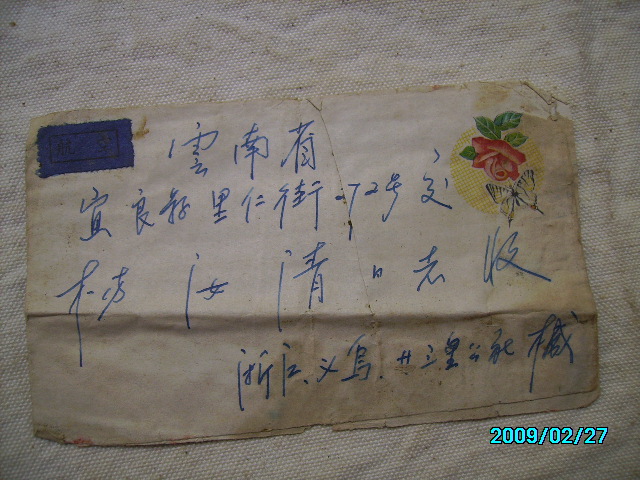 航空
雲南省
宜良县里仁街72号交
杨汝清同志收
浙江、义乌、廿三里公社 椷
2009/02/27